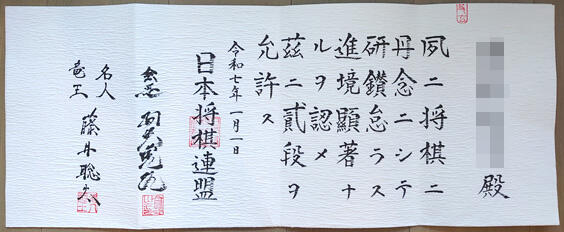 殿
夙ニ将棋ニ
丹念ニシテ
研鑽怠ラス
進境顯著ナ
ルヲ認メ
茲ニ貳段ヲ
允許ス
令和七年一月一日
日本将棋連盟
会長 羽生善治
名人
竜王 藤井聡太